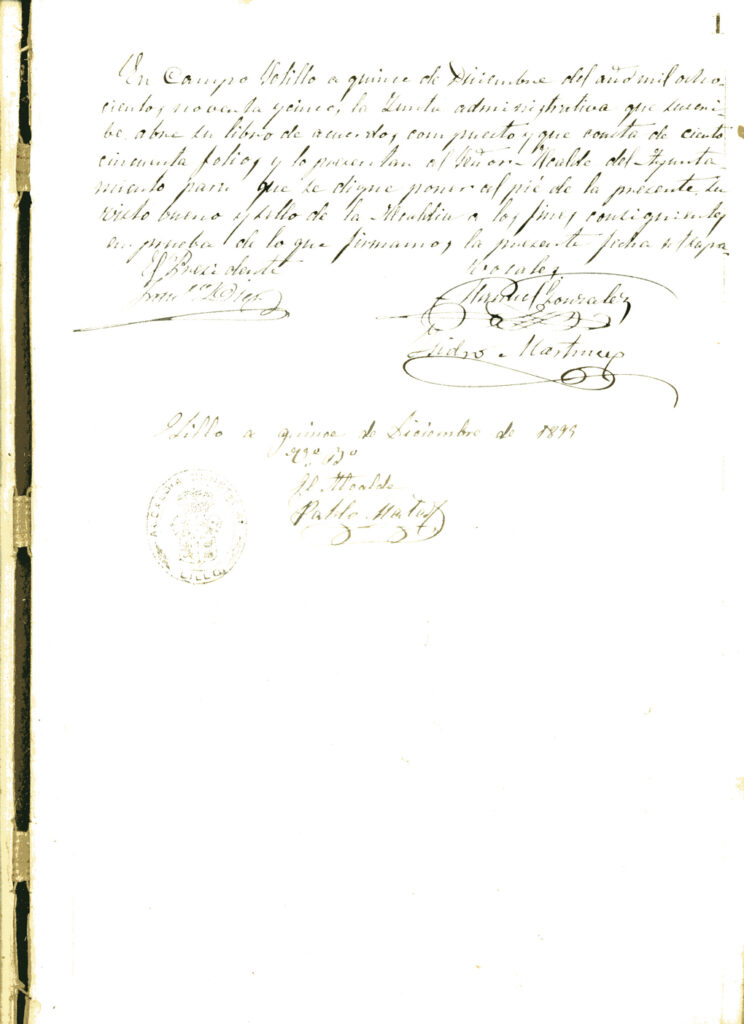 1
En Campo Solillo a quince de Diciembre del año mil ocho-
cientos noventa y cinco, la Junta administrativa que suscri-
be, abre su libro de acuerdos, compuesto y que consta de ciento
cincuenta folios, y lo presentan al Señor Alcalde del Ayunta-
miento para que se digne poner al pié de la presente, su
visto bueno y sello de la Alcaldia a los fines consiguientes
en prueba de lo que firmamos, la presente fecha
El Presidente
Vocales
Manuel Gonzalez
Isidro Martinez
Lillo a quince de Diciembre de 1895
Vº Bº
El Alcalde
Pablo
ALCALDIA
LILLO